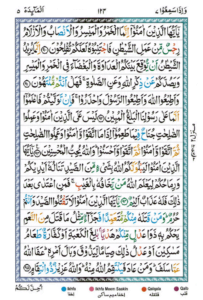 وَاِذَا سَمِعُوْا ٧ ١٢٣ اَلْمَآئِدَة ٥
يٰٓاَيُّهَا الَّذِيْنَ اٰمَنُوْٓا اِنَّمَا الْخَمْرُ وَالْمَيْسِرُ وَالْاَنْصَابُ وَالْاَزْلَامُ
رِجْسٌ مِّنْ عَمَلِ الشَّيْطٰنِ فَاجْتَنِبُوْهُ لَعَلَّكُمْ تُفْلِحُوْنَ اِنَّمَا يُرِيْدُ
الشَّيْطٰنُ اَنْ يُّوْقِعَ بَيْنَكُمُ الْعَدَاوَةَ وَالْبَغْضَآءَ فِي الْخَمْرِ وَالْمَيْسِرِ
وَيَصُدَّكُمْ عَنْ ذِكْرِ اللّٰهِ وَعَنِ الصَّلٰوةِ فَهَلْ اَنْتُمْ مُّنْتَهُوْنَ
وَاَطِيْعُوا اللّٰهَ وَاَطِيْعُوا الرَّسُوْلَ وَاحْذَرُوْا فَاِنْ تَوَلَّيْتُمْ فَاعْلَمُوْٓا
اَنَّمَا عَلٰى رَسُوْلِنَا الْبَلٰغُ الْمُبِيْنُ لَيْسَ عَلَى الَّذِيْنَ اٰمَنُوْا وَعَمِلُوا
الصّٰلِحٰتِ جُنَاحٌ فِيْمَا طَعِمُوْٓا اِذَا مَا اتَّقَوْا وَّاٰمَنُوْا وَعَمِلُوا الصّٰلِحٰتِ
ثُمَّ اتَّقَوْا وَّاٰمَنُوْا ثُمَّ اتَّقَوْا وَّاَحْسَنُوْا وَاللّٰهُ يُحِبُّ الْمُحْسِنِيْنَ
يٰٓاَيُّهَا الَّذِيْنَ اٰمَنُوْا لَيَبْلُوَنَّكُمُ اللّٰهُ بِشَيْءٍ مِّنَ الصَّيْدِ تَنَالُهٗٓ اَيْدِيْكُمْ
وَرِمَاحُكُمْ لِيَعْلَمَ اللّٰهُ مَنْ يَّخَافُهٗ بِالْغَيْبِ فَمَنِ اعْتَدٰى بَعْدَ
ذٰلِكَ فَلَهٗ عَذَابٌ اَلِيْمٌ يٰٓاَيُّهَا الَّذِيْنَ اٰمَنُوْا لَا تَقْتُلُوا الصَّيْدَ وَاَنْتُمْ
حُرُمٌ وَمَنْ قَتَلَهٗ مِنْكُمْ مُّتَعَمِّدًا فَجَزَآءٌ مِّثْلُ مَا قَتَلَ مِنَ النَّعَمِ
يَحْكُمُ بِهٖ ذَوَا عَدْلٍ مِّنْكُمْ هَدْيًا بٰلِغَ الْكَعْبَةِ اَوْ كَفَّارَةٌ طَعَامُ
مَسٰكِيْنَ اَوْ عَدْلُ ذٰلِكَ صِيَامًا لِّيَذُوْقَ وَبَالَ اَمْرِهٖ عَفَا اللّٰهُ
عَمَّا سَلَفَ وَمَنْ عَادَ فَيَنْتَقِمُ اللّٰهُ مِنْهُ وَاللّٰهُ عَزِيْزٌ ذُو انْتِقَامٍ